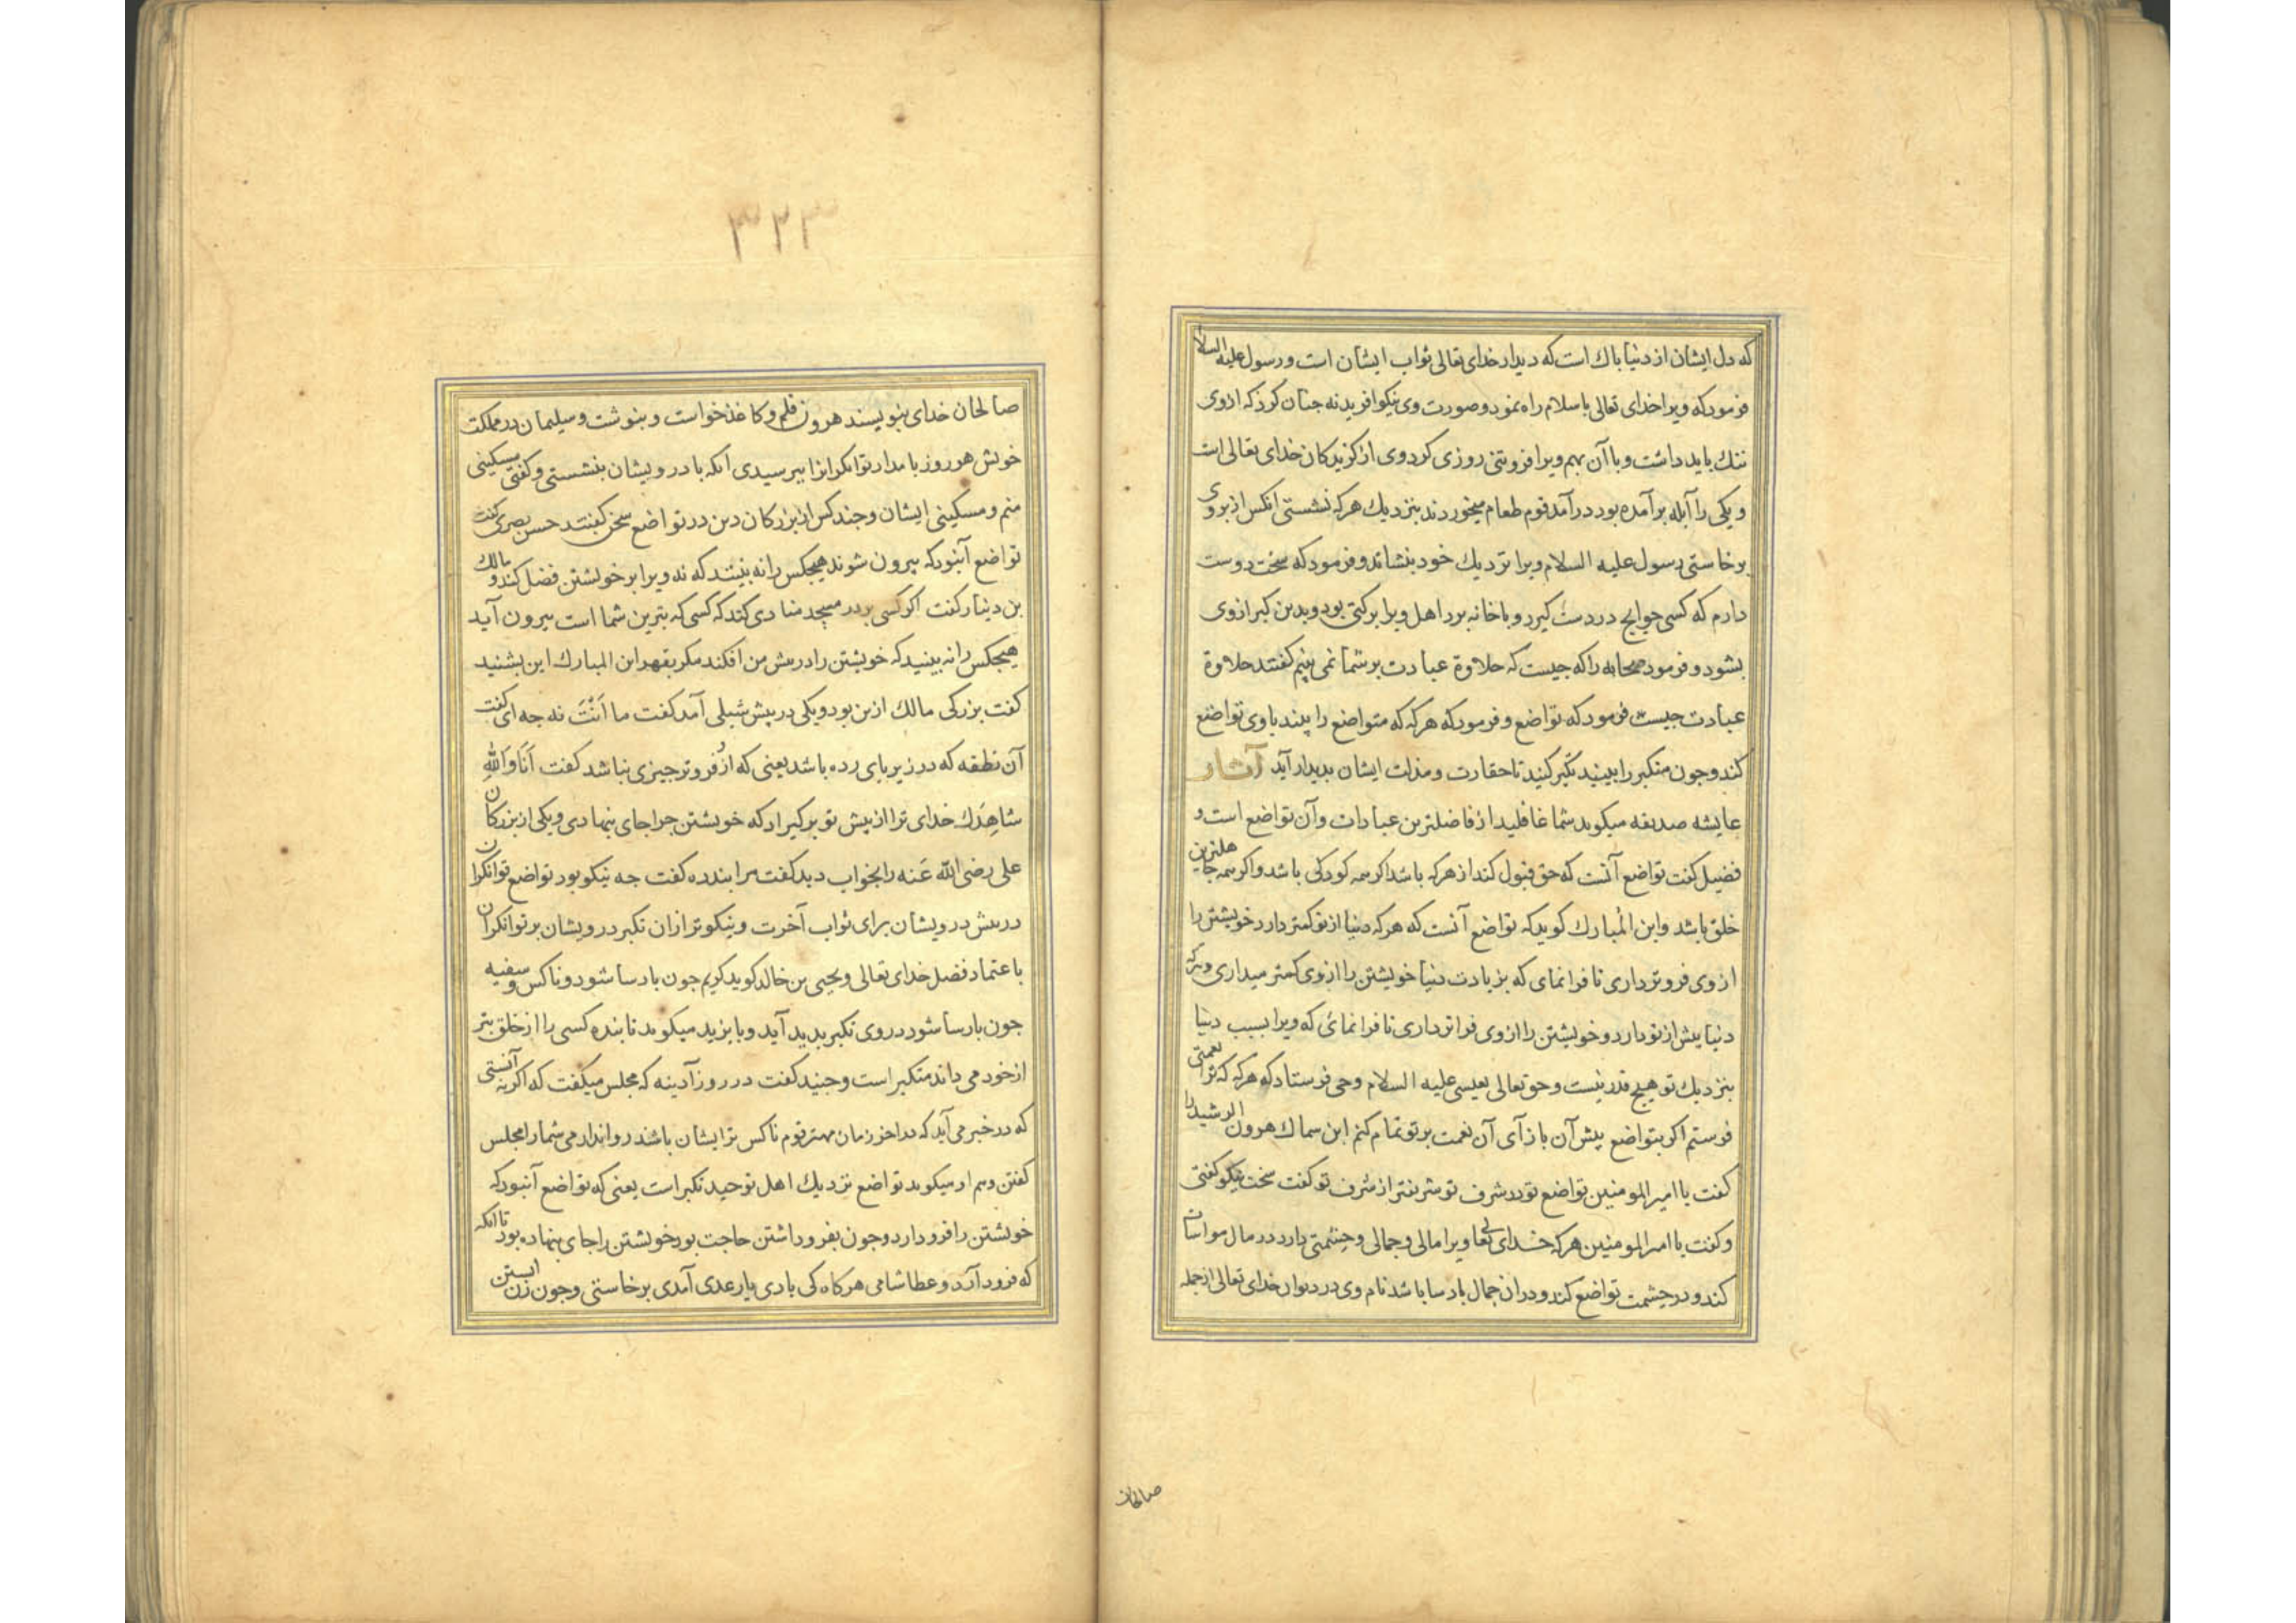 که دل ایشان از دنیا باك است که دیدار خدای تعالی ثواب ایشان است و رسول علیه السلا
فرمود که ویرا خدای تعالی باسلام راه نمود و صورت وی نیکو افرید نه جنان کرد که ازوی
ننك باید داشت و با آن بهم ویرا فروتنی روزی کرد وی از کزیدکان خدای تعالی است
و یکی را آبله برآمده بود درآمد قوم طعام میخوردند بنزدیك هرکه نشستی انکس از بر وی
برخاستی رسول علیه السلام ویرا نزدیك خود بنشاند و فرمود که سخت دوست
دارم که کسی حوایج در دست کیرد و باخانه برد اهل ویرا برکتی بود و بدین کبر ازوی
بشود و فرمود صحابه را که جیست که حلاوة عبادت بر شما نمی بینم کفتند حلاوة
عبادت جیست فرمود که تواضع و فرمود که هرکه که متواضع را بیند با وی تواضع
کند و جون متکبر را بینید تکبر کنید تا حقارت و مذلت ایشان بدیدار آید آثار
عایشه صدیقه میکوید شما غافلید از فاضلترین عبادات و آن تواضع است و
فضیل کفت تواضع آنست که حق قبول کند از هرکه باشد اکر سمه کودکی باشد و اکر سمه جاهلترین
خلق باشد وابن المُبارك کوید که تواضع آنست که هرکه دنیا از تو کمتر دارد خویشتن را
از وی فروتر داری تا فرا نمای که بزیادت دنیا خویشتن را ازوی کمتر میداری و هرکه
دنیا بیش از تو دارد و خویشتن را ازوی فراتر داری تا فرا نمائ که ویرا بسبب دنیا
بنزدیك تو هیج قدر نیست و حق تعالی بعیسی علیه السلام وحی فرستاد که هرکه که ترا نعمتی
فرستم اکر بتواضع پیش آن باز آی آن نعمت بر تو تمام کنم ابن سماك هرون الرشید را
کفت یا امیر المومنین تواضع تو در شرف تو شریفتر از شرف تو کفت سخت نیکو کفتی
و کفت یا امیر المومنین هرکه خدای تعالی ویرا مالی و جمالی و حشمتی دارد در مال مواسات
کند و در حشمت تواضع کند و در ان جمال بارسا باشد نام وی در دیوان خدای تعالی از جمله
صالحان
۳۲۳
صالحان خدای بنویسند هرون قلم و کاغذ خواست و بنوشت و سیلیمان در مملکت
خویش هر روز بامداد توانکرانرا ببرسیدی انکه با درویشان بنشستی و کفتی مسکینی
منم و مسکینی ایشان و جند کس از بزرکان دین در تواضع سخن کفتند حسن بصری کفت
تواضع آنبود که بیرون شوند هیجکس را نه بینند که نه ویرا بر خویشتن فضل کند و مالك
بن دنیار کفت اکر کسی بر در مسجد منادی کند که کسی که بترین شما است بیرون آید
هیجکس را نه بینید که خویشتن را در بیش من افکند مکر بقهر ابن المبارك این بشنید
کفت بزرکی مالك ازین بود و یکی در بیش شبلی آمد کفت ما اَنْتَ نه جه ای کفت
آن نطقه که در زیر بای رده باشد یعنی که ازُ فروتر جیزی نباشد کفت اَنَا وَاللّٰهِ
شاهِدَك خدای ترا از بیش تو بر کیراد که خویشتن جرا جای بنهادی و یکی از بزرکان
علی رضی الله عَنه را بخواب دید کفت مرا بندده کفت جه نیکو بود تواضع توانکران
در بیش درویشان برای ثواب آخرت و نیکوتر ازان تکبر درویشان بر توانکران
باعتماد فضل خدای تعالی و یحیی بن خالد کوید کریم جون بارسا شود و ناکس و سفیه
جون بارسا شود در وی تکبر بدید آید و بایزید میکوید تا بنده کسی را از خلق بتر
از خود می داند متکبر است و جنید کفت در روز آدینه که مجلس میکفت که اکر نه آنستی
که در خبر می آید که در اخر زمان مهتر قوم ناکس ترایشان باشند روا ندارمی شما را مجلس
کفتن و هم او میکوید تواضع نزدیك اهل توحید تکبر است یعنی که تواضع آنبود که
خویشتن را فرو دارد و جون بفرو داشتن حاجت بود خویشتن را جای بنهاده بود تا انکه
که فرود آرد و عطا شامی هرکاه کی بادی یا رعدی آمدی برخاستی و جون زن ابستن